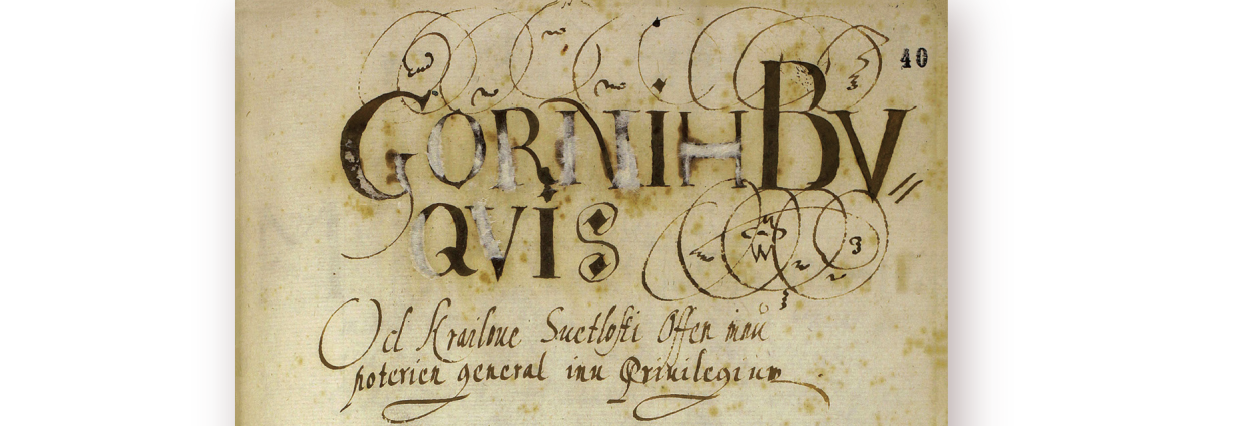 40
GORNIH BV//
QVIS
Od Kraileue Suetlosti Offen inu
poterien general inu Priuilegium